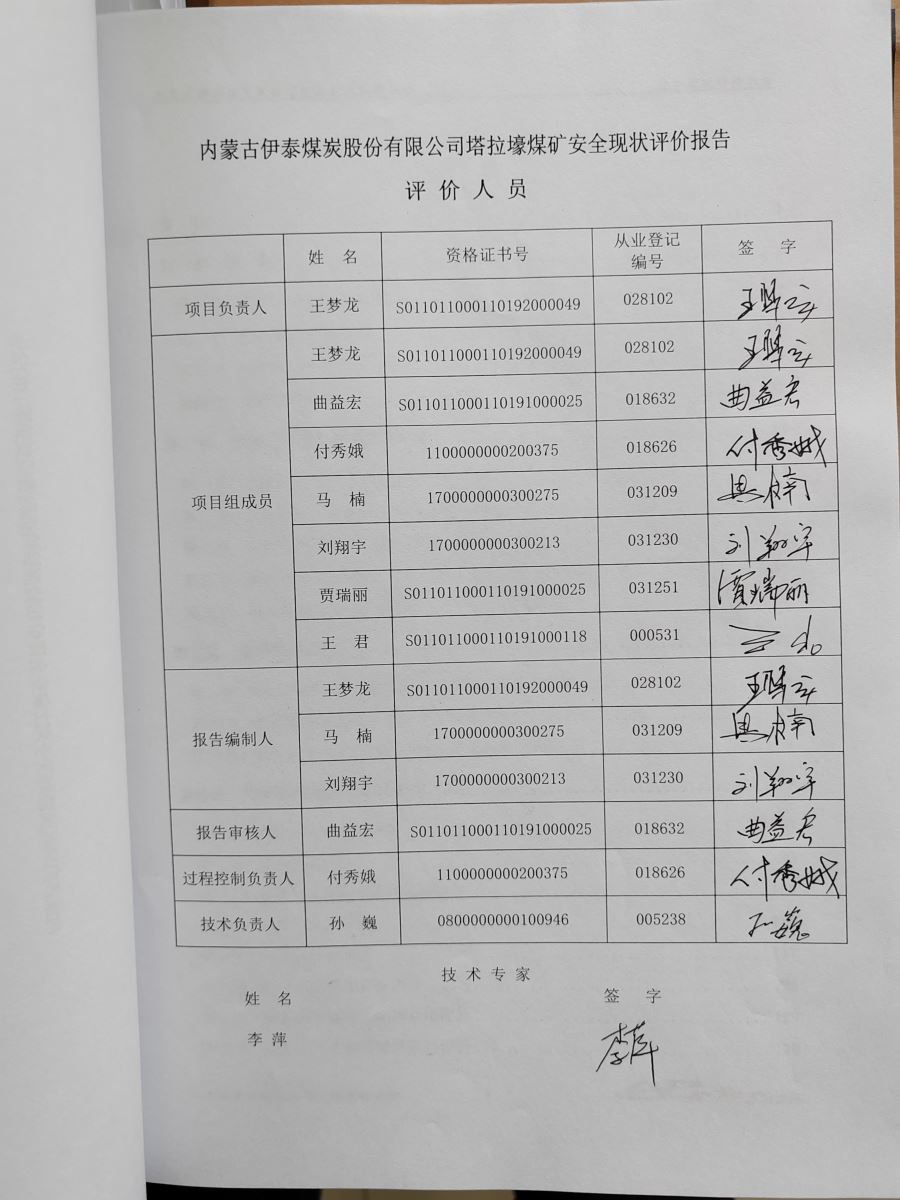 内蒙古伊泰煤炭股份有限公司塔拉壕煤矿安全现状评价报告
评价人员
姓 名 资格证书号 从业登记编号 签 字
项目负责人 王梦龙 S011011000110192000049 028102
项目组成员 王梦龙 S011011000110192000049 028102
曲益宏 S011011000110191000025 018632 曲益宏
付秀娥 1100000000200375 018626 付秀娥
马 楠 1700000000300275 031209 马楠
刘翔宇 1700000000300213 031230 刘翔宇
贾瑞丽 S011011000110191000025 031251 贾瑞丽
王 君 S011011000110191000118 000531
报告编制人 王梦龙 S011011000110192000049 028102
马 楠 1700000000300275 031209 马楠
刘翔宇 1700000000300213 031230 刘翔宇
报告审核人 曲益宏 S011011000110191000025 018632 曲益宏
过程控制负责人 付秀娥 1100000000200375 018626 付秀娥
技术负责人 孙 巍 0800000000100946 005238 孙巍
技术专家
姓 名 签 字
李 萍 李萍